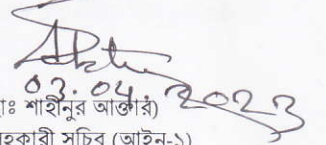 03.04.2023
াঃ শাহীনুর আক্তার)
হকারী সচিব (আইন-১)